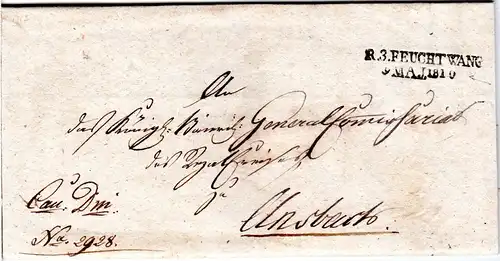 R.3.FEUCHTWANG
9 MAJ.1810
An
das Königl: Bairisch: General Comissariat
des Rezat Creises
zu
Ansbach.
Cau: Dni
No. 2928.